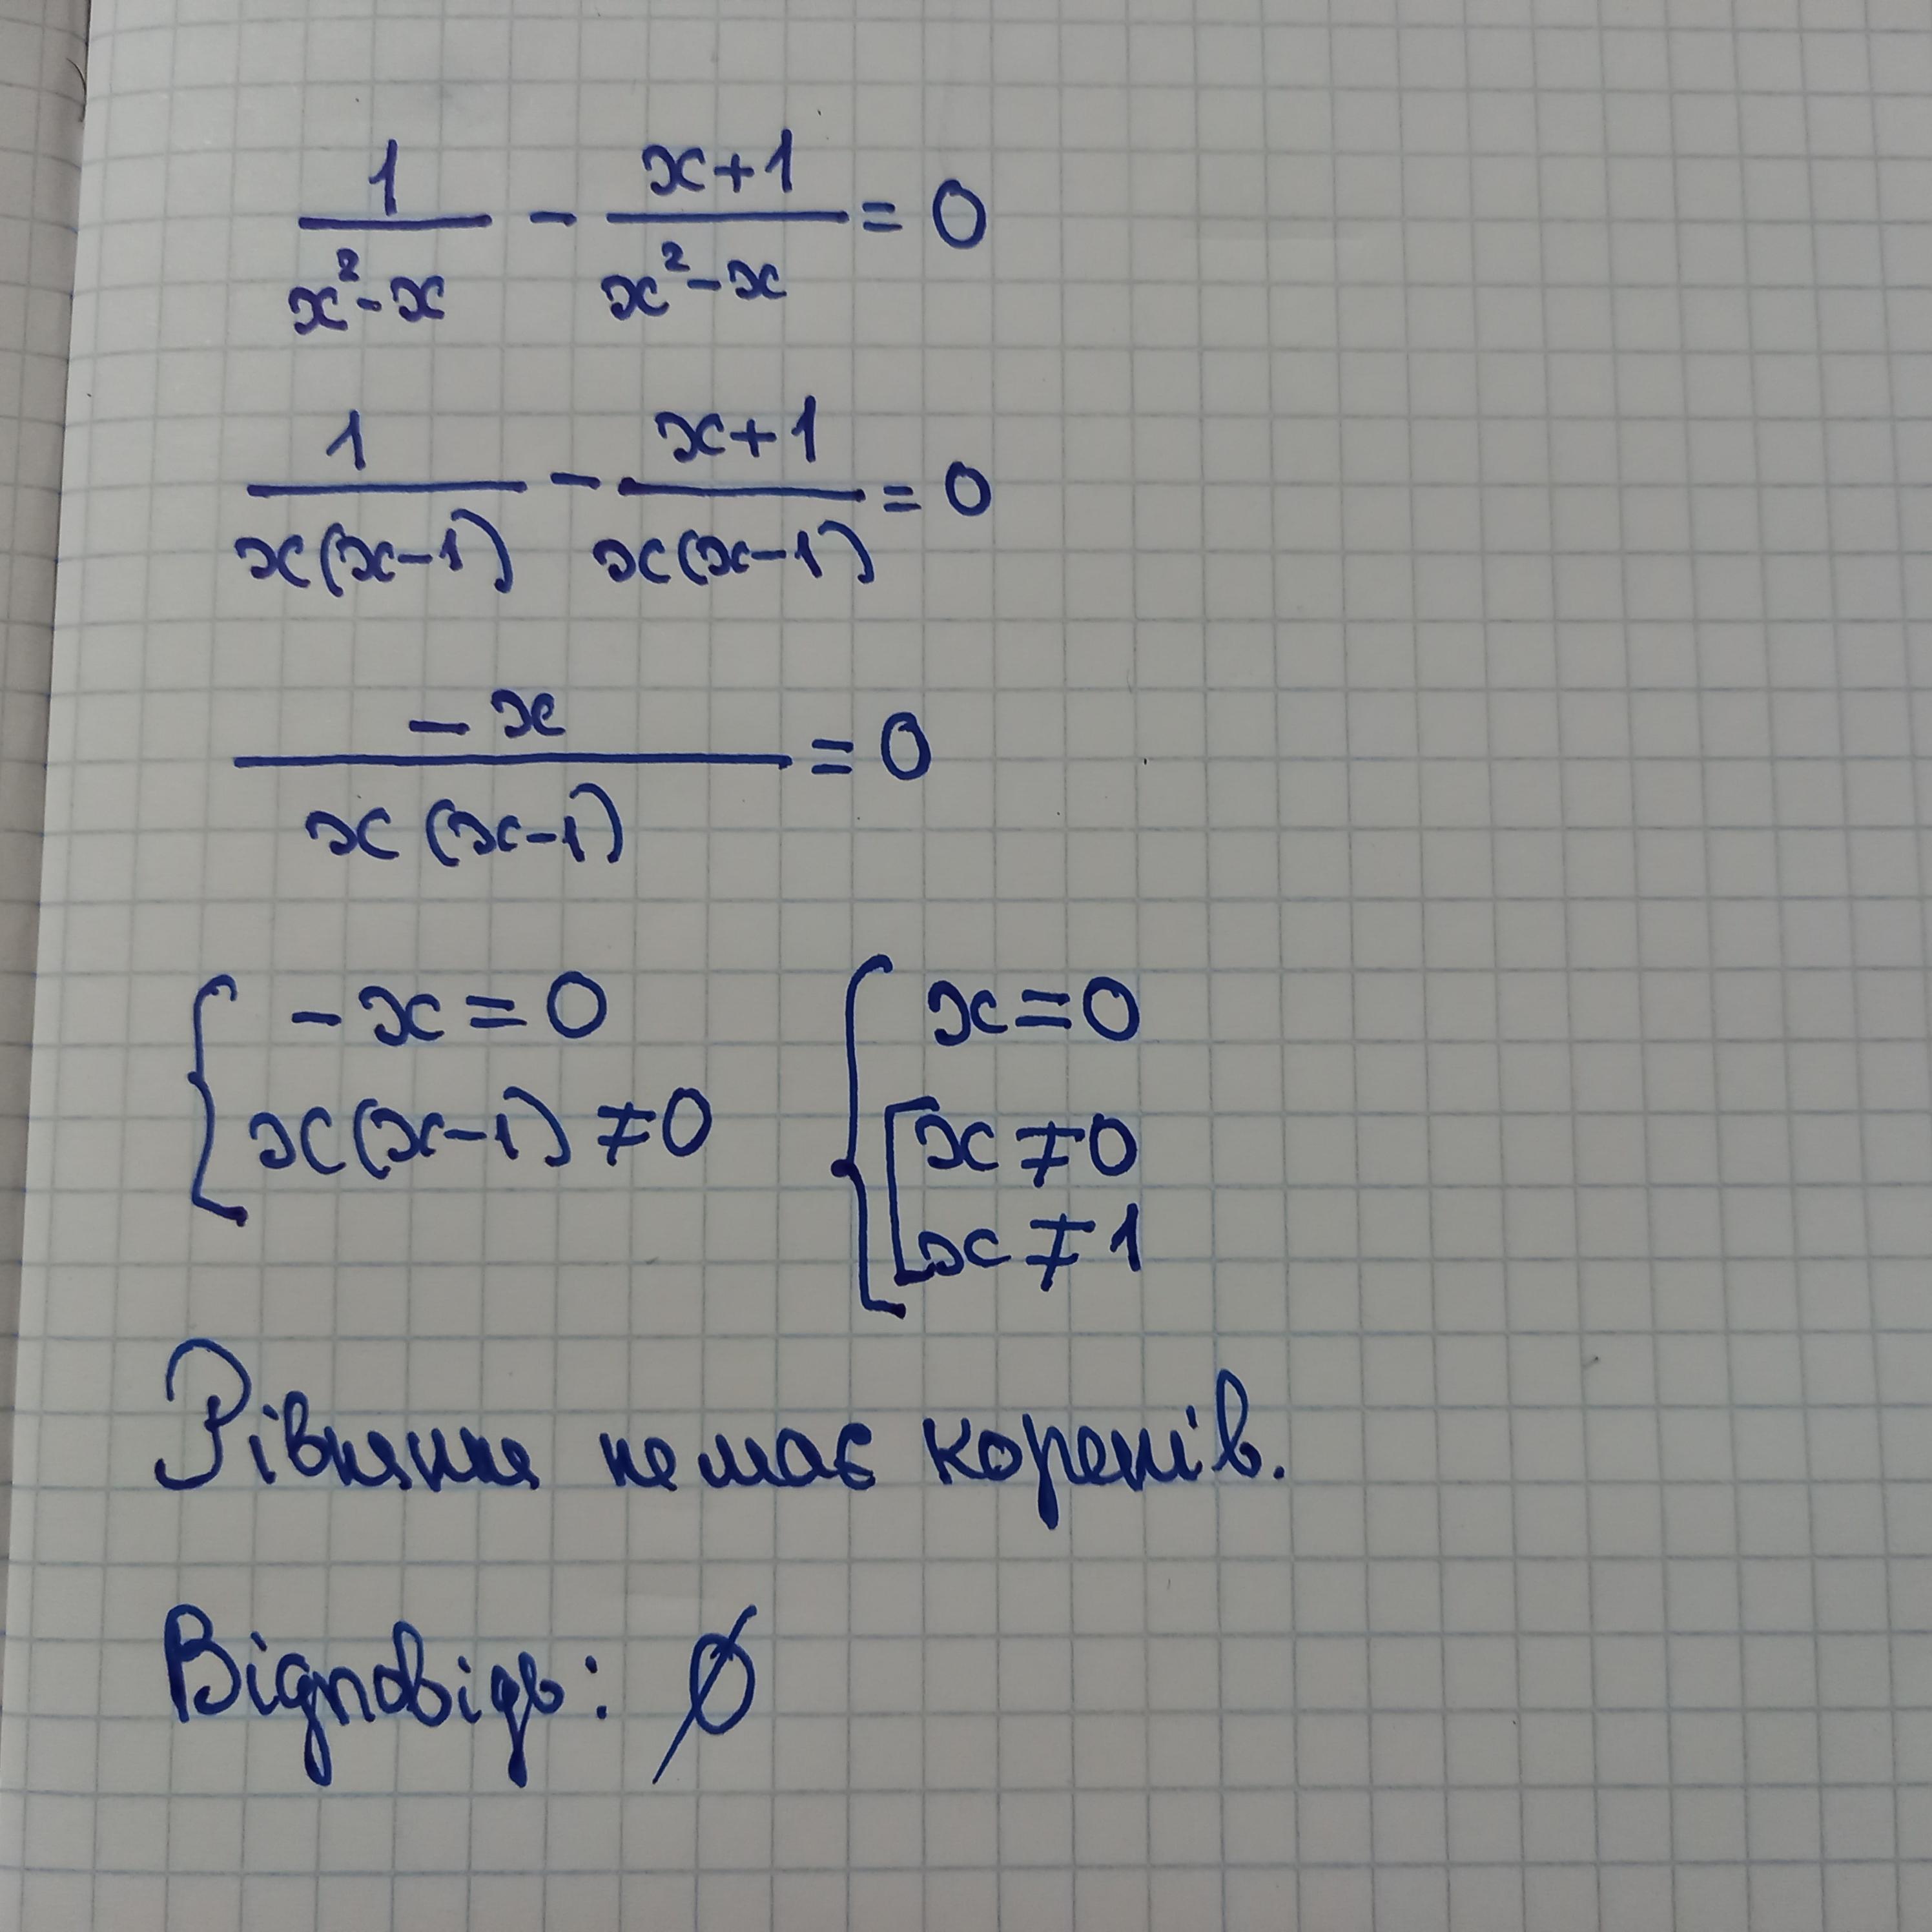 1/(x² - x) - (x+1)/(x² - x) = 0
1/(x(x-1)) - (x+1)/(x(x-1)) = 0
-x/(x(x-1)) = 0
{ -x = 0 { x = 0
x(x-1) ≠ 0 [ x ≠ 0
x ≠ 1
Рівняння не має коренів.
Відповідь: ∅